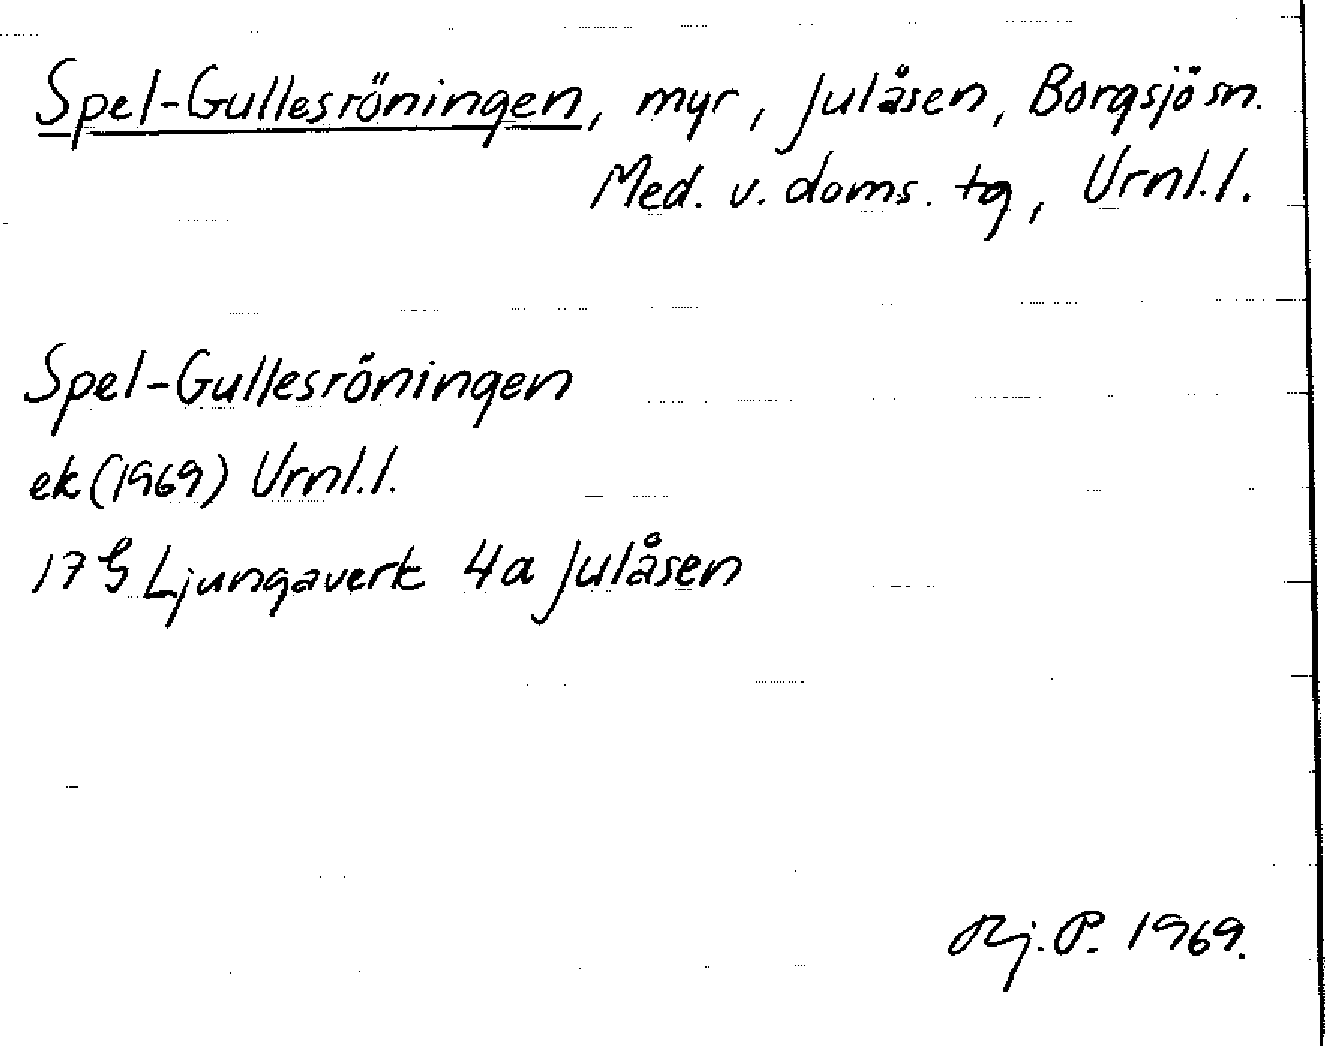 Spel-Gullesröningen, myr, Julåsen, Borgsjö sn.
Med. v. doms. tg, Vrnl.l.
Spel-Gullesröningen
ek (1969) Vrnl.l.
17 G Ljungaverk 4a Julåsen
Rj. P. 1969.